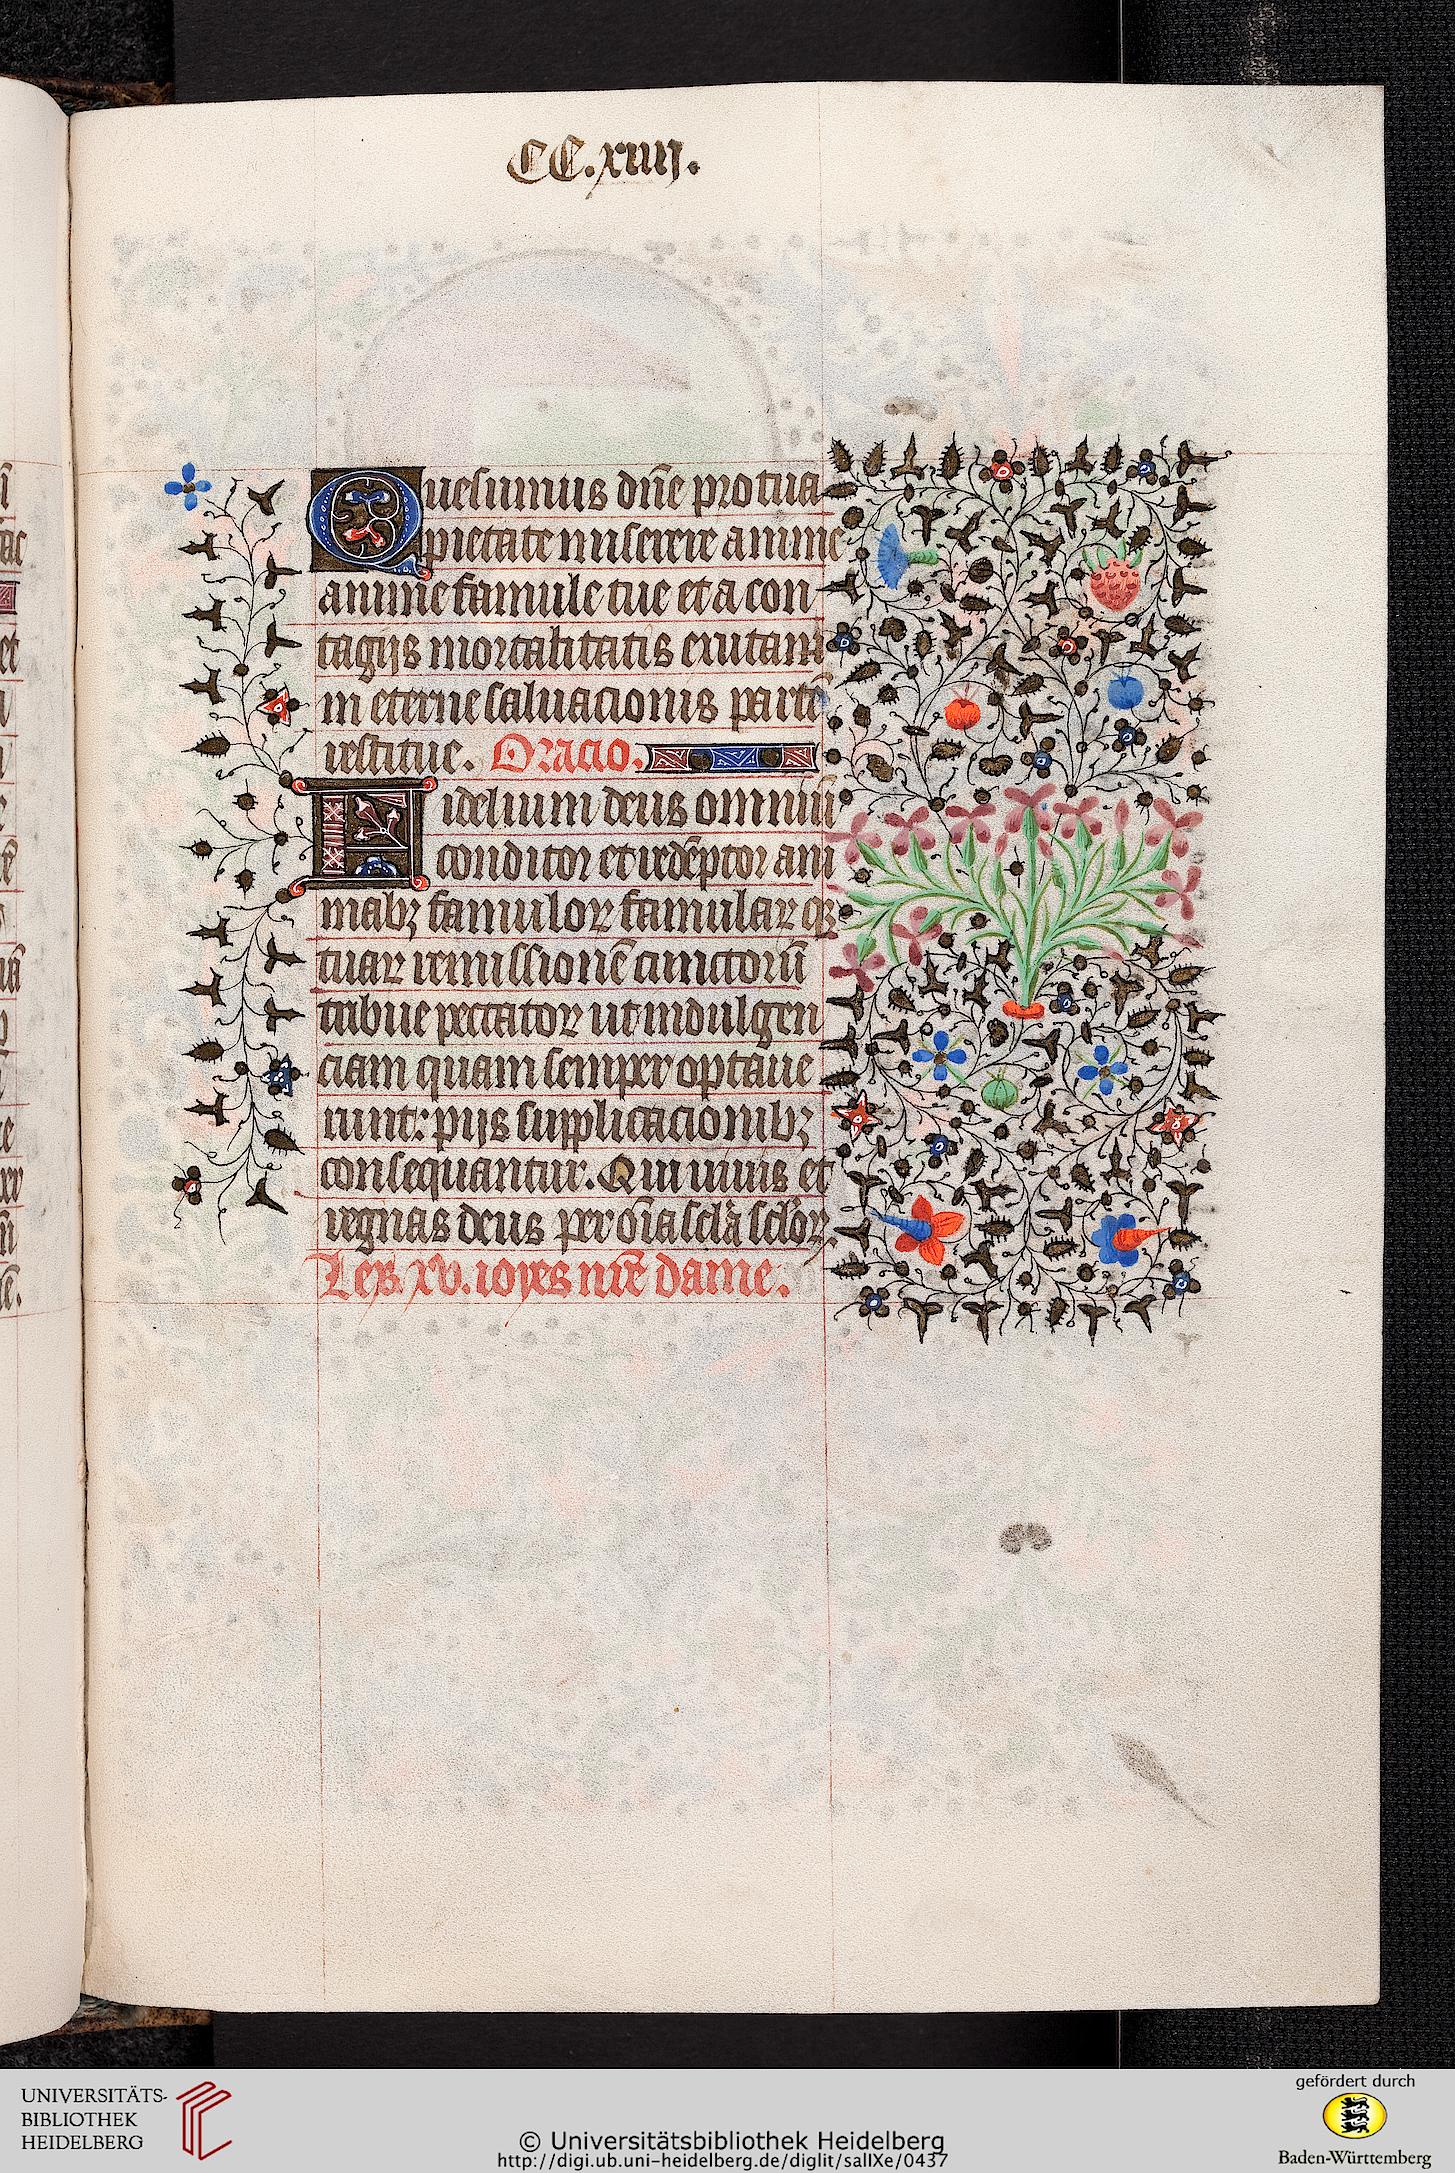 CC.xiiij.
Quesumus dn̄e pro tua
pietate miserere anime
anime famule tue et a con
tagijs mortalitatis exutam
in eterne saluacionis partē
restitue. Oracio.
Fidelium deus omniū
conditor et redēptor ani
mabꝫ famuloꝝ famulaꝝ qꝫ
tuaꝝ remissionē cunctorū
tribue peccatoꝝ ut indulgen
ciam quam semper optaue
runt: pijs supplicacionibꝫ
consequantur. Qui uiuis et
regnas deus per oīa scl̄a scl̄oꝝ.
Les. xv. ioyes nr̄e dame.
UNIVERSITÄTS-
BIBLIOTHEK
HEIDELBERG
© Universitätsbibliothek Heidelberg
http://digi.ub.uni-heidelberg.de/diglit/salIXe/0437
gefördert durch
Baden-Württemberg